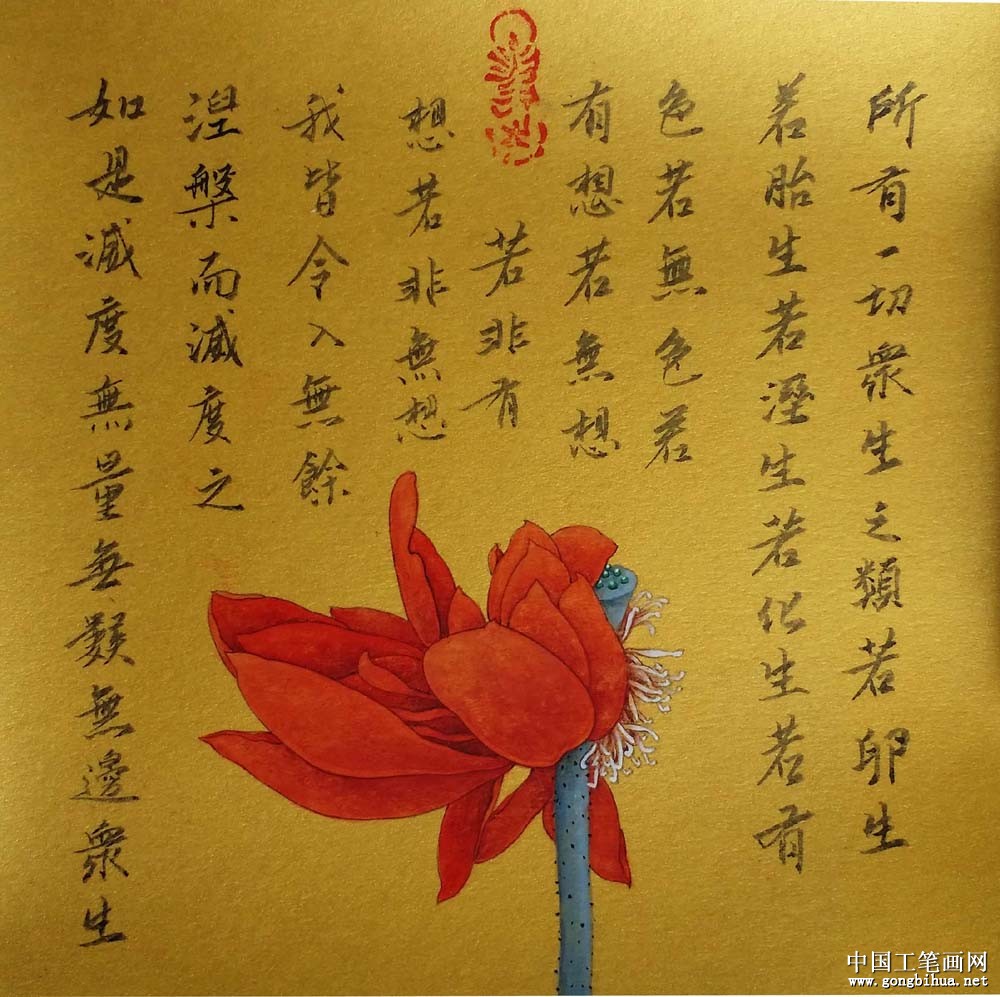 所有一切衆生之類若卵生
若胎生若溼生若化生若有
色若無色若
有想若無想
若非有
想若非無想
我皆令入無餘
涅槃而滅度之
如是滅度無量無數無邊衆生
中国工笔画网
www.gongbihua.net